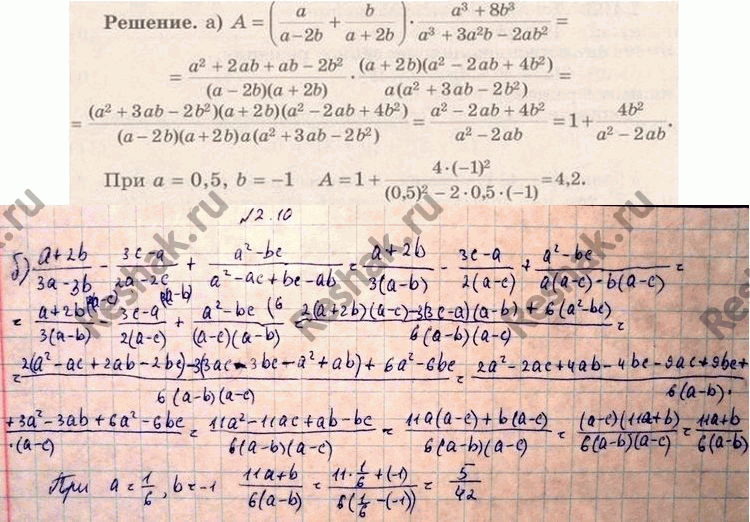 Решение. а) A = (a/(a−2b) + b/(a+2b)) · (a³+8b³)/(a³+3a²b−2ab²) =
= (a²+2ab+ab−2b²)/((a−2b)(a+2b)) · ((a+2b)(a²−2ab+4b²))/(a(a²+3ab−2b²)) =
= ((a²+3ab−2b²)(a+2b)(a²−2ab+4b²))/((a−2b)(a+2b)a(a²+3ab−2b²)) = (a²−2ab+4b²)/(a²−2ab) = 1 + 4b²/(a²−2ab).
При a = 0,5, b = −1 A = 1 + (4·(−1)²)/((0,5)²−2·0,5·(−1)) = 4,2.
№2.10
б) (a+2b)/(3a−3b) − (3c−a)/(2a−2c) + (a²−bc)/(a²−ac+bc−ab) = (a+2b)/(3(a−b)) − (3c−a)/(2(a−c)) + (a²−bc)/(a(a−c)−b(a−c)) =
= (a+2b)/(3(a−b)) − (3c−a)/(2(a−c)) + (a²−bc)/((a−c)(a−b)) = (2(a+2b)(a−c)−3(3c−a)(a−b)+6(a²−bc))/(6(a−b)(a−c)) =
= (2(a²−ac+2ab−2bc)−3(3ac−3bc−a²+ab)+6a²−6bc)/(6(a−b)(a−c)) = (2a²−2ac+4ab−4bc−9ac+9bc+)/(6(a−b)·
(+3a²−3ab+6a²−6bc)/(·(a−c)) = (11a²−11ac+ab−bc)/(6(a−b)(a−c)) = (11a(a−c)+b(a−c))/(6(a−b)(a−c)) = ((a−c)(11a+b))/(6(a−b)(a−c)) = (11a+b)/(6(a−b)
При a = 1/6, b = −1 (11a+b)/(6(a−b)) = (11·1/6+(−1))/(6(1/6−(−1))) = 5/42
Reshak.ru
Reshak.ru
Reshak.ru